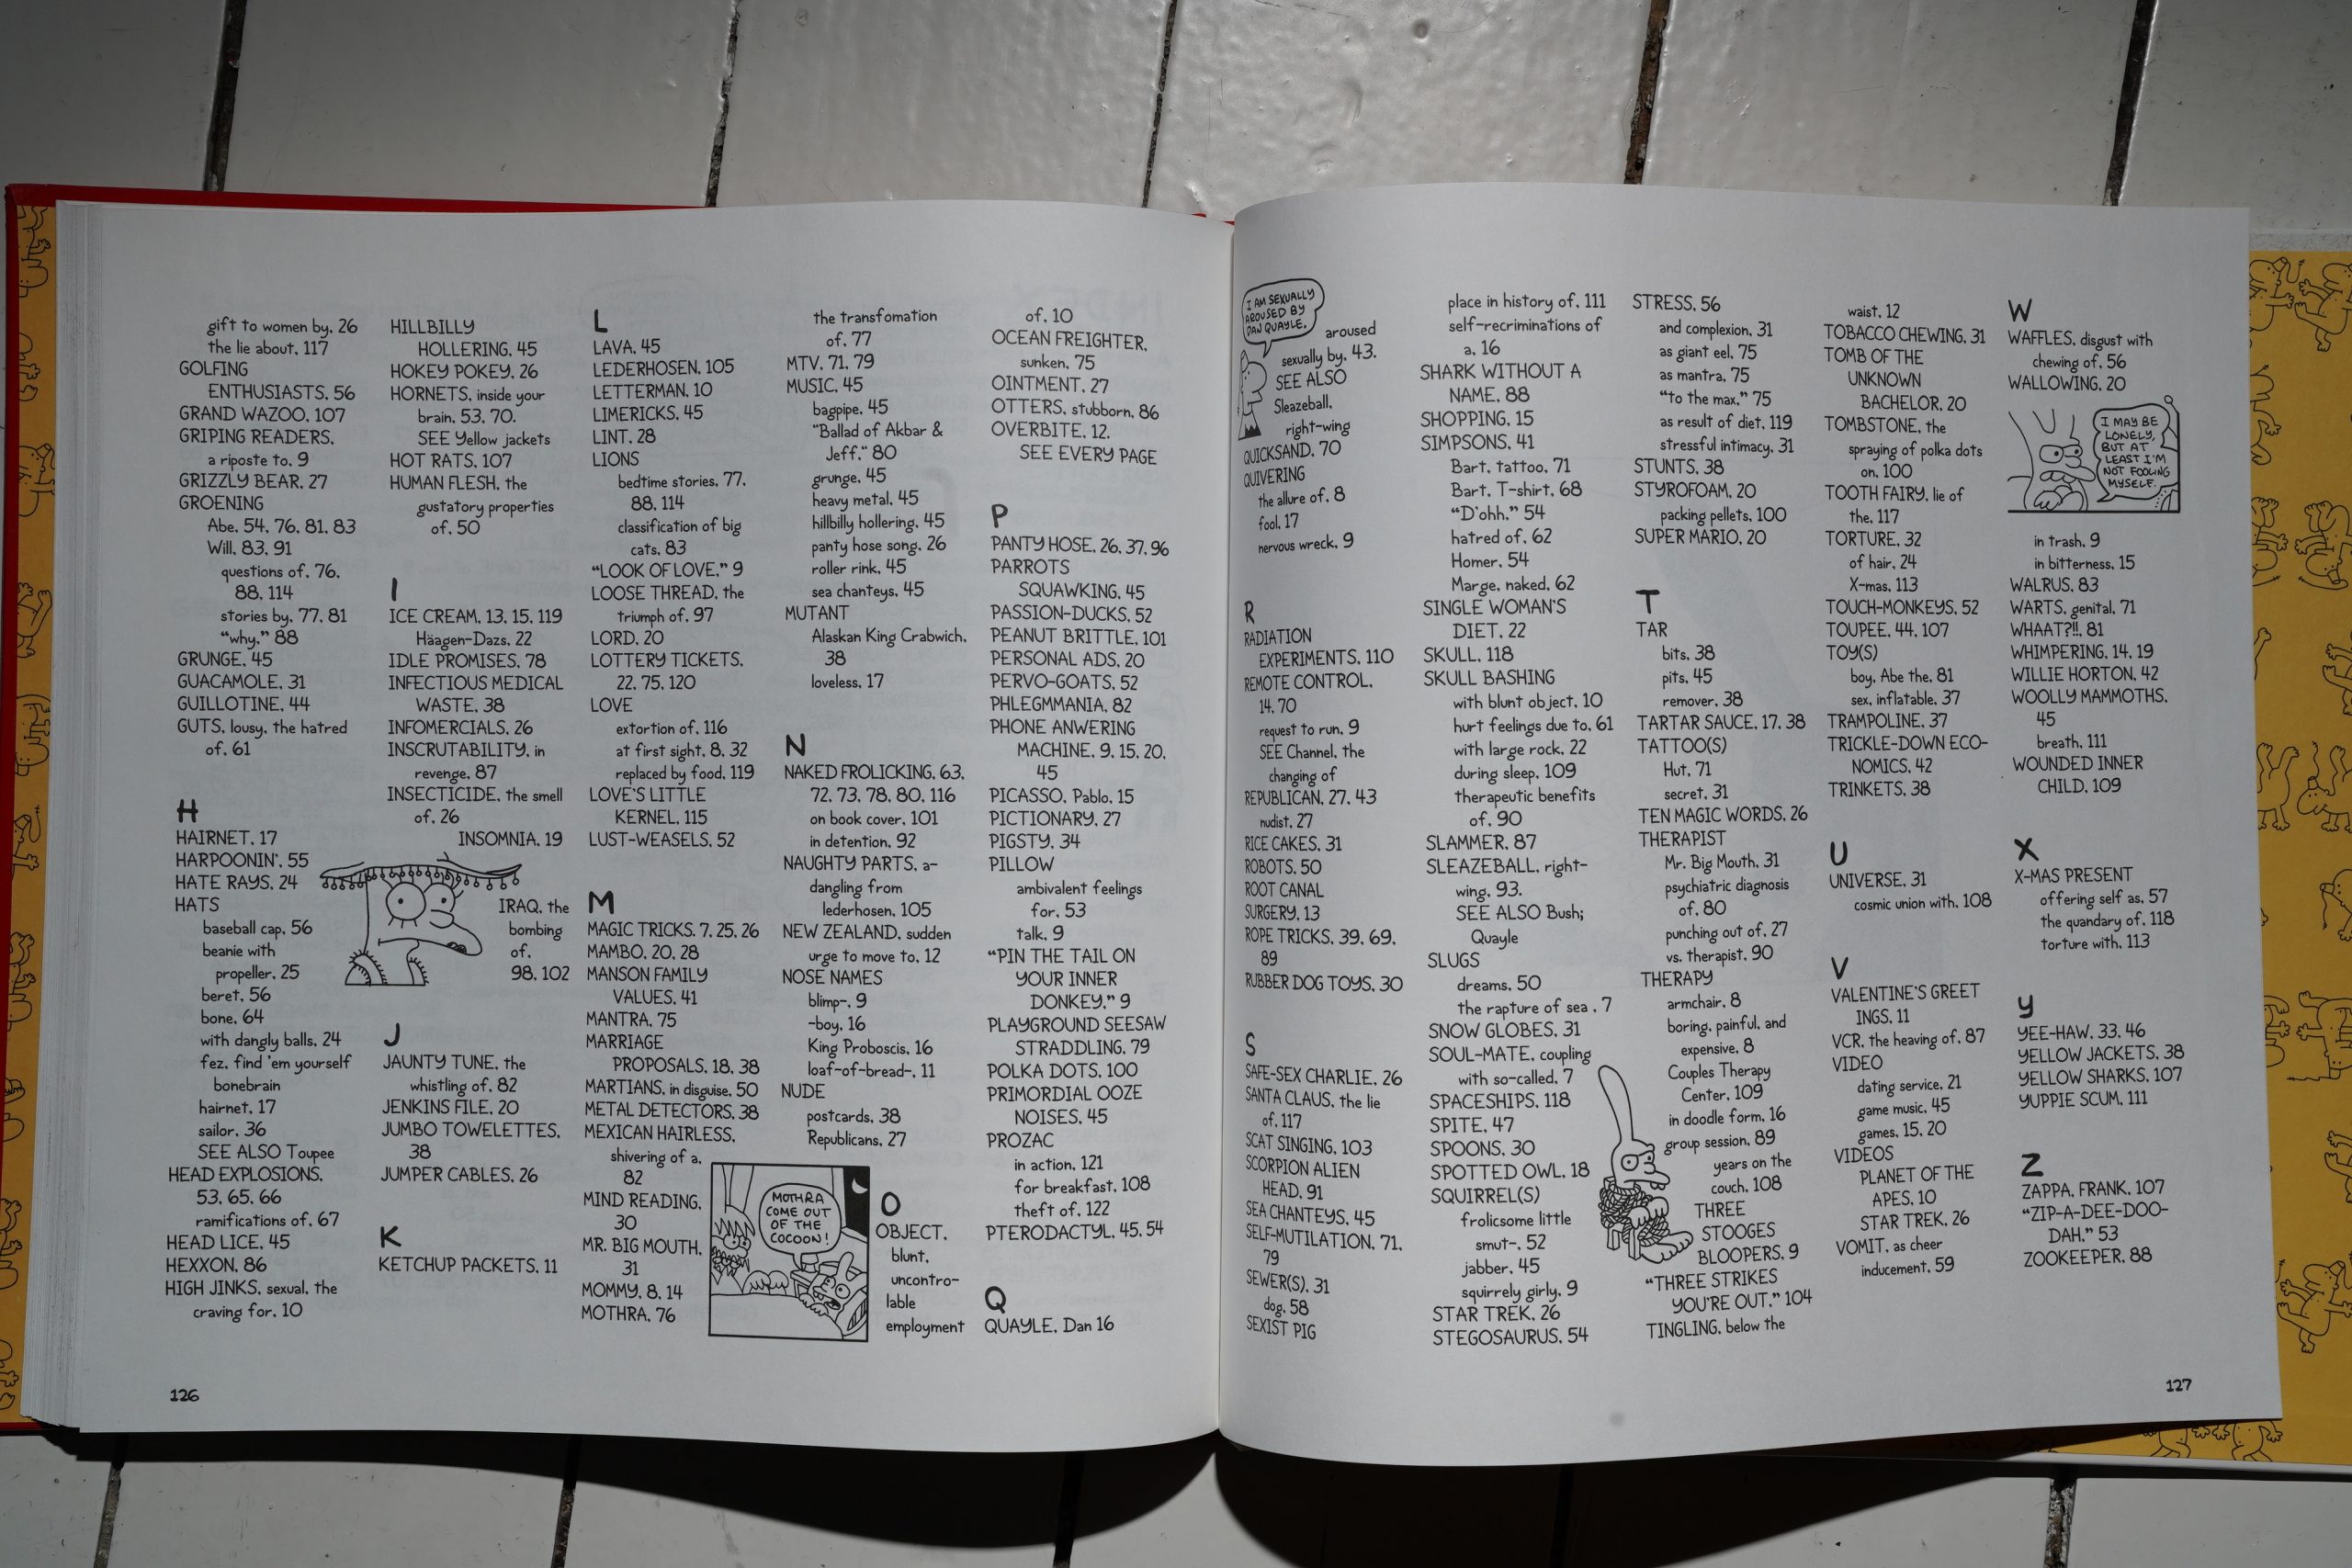 gift to women by, 26
the lie about, 117
GOLFING
ENTHUSIASTS, 56
GRAND WAZOO, 107
GRIPING READERS,
a riposte to, 9
GRIZZLY BEAR, 27
GROENING
Abe, 54, 76, 81, 83
Will, 83, 91
questions of, 76,
88, 114
stories by, 77, 81
"why," 88
GRUNGE, 45
GUACAMOLE, 31
GUILLOTINE, 44
GUTS, lousy, the hatred
of, 61
H
HAIRNET, 17
HARPOONIN', 55
HATE RAYS, 24
HATS
baseball cap, 56
beanie with
propeller, 25
beret, 56
bone, 64
with dangly balls, 24
fez, find 'em yourself
bonebrain
hairnet, 17
sailor, 36
SEE ALSO Toupee
HEAD EXPLOSIONS,
53, 65, 66
ramifications of, 67
HEAD LICE, 45
HEXXON, 86
HIGH JINKS, sexual, the
craving for, 10
HILLBILLY
HOLLERING, 45
HOKEY POKEY, 26
HORNETS, inside your
brain, 53, 70.
SEE Yellow jackets
HOT RATS, 107
HUMAN FLESH, the
gustatory properties
of, 50
I
ICE CREAM, 13, 15, 119
Häagen-Dazs, 22
IDLE PROMISES, 78
INFECTIOUS MEDICAL
WASTE, 38
INFOMERCIALS, 26
INSCRUTABILITY, in
revenge, 87
INSECTICIDE, the smell
of, 26
INSOMNIA, 19
IRAQ, the
bombing
of,
98, 102
J
JAUNTY TUNE, the
whistling of, 82
JENKINS FILE, 20
JUMBO TOWELETTES,
38
JUMPER CABLES, 26
K
KETCHUP PACKETS, 11
L
LAVA, 45
LEDERHOSEN, 105
LETTERMAN, 10
LIMERICKS, 45
LINT, 28
LIONS
bedtime stories, 77,
88, 114
classification of big
cats, 83
"LOOK OF LOVE," 9
LOOSE THREAD, the
triumph of, 97
LORD, 20
LOTTERY TICKETS,
22, 75, 120
LOVE
extortion of, 116
at first sight, 8, 32
replaced by food, 119
LOVE'S LITTLE
KERNEL, 115
LUST-WEASELS, 52
M
MAGIC TRICKS, 7, 25, 26
MAMBO, 20, 28
MANSON FAMILY
VALUES, 41
MANTRA, 75
MARRIAGE
PROPOSALS, 18, 38
MARTIANS, in disguise, 50
METAL DETECTORS, 38
MEXICAN HAIRLESS,
shivering of a,
82
MIND READING,
30
MR. BIG MOUTH,
31
MOMMY, 8, 14
MOTHRA, 76
the transfomation
of, 77
MTV, 71, 79
MUSIC, 45
bagpipe, 45
"Ballad of Akbar &
Jeff," 80
grunge, 45
heavy metal, 45
hillbilly hollering, 45
panty hose song, 26
roller rink, 45
sea chanteys, 45
MUTANT
Alaskan King Crabwich,
38
loveless, 17
N
NAKED FROLICKING, 63,
72, 73, 78, 80, 116
on book cover, 101
in detention, 92
NAUGHTY PARTS, a-
dangling from
lederhosen, 105
NEW ZEALAND, sudden
urge to move to, 12
NOSE NAMES
blimp-, 9
-boy, 16
King Proboscis, 16
loaf-of-bread-, 11
NUDE
postcards, 38
Republicans, 27
MOTHRA
COME OUT
OF THE
COCOON!
O
OBJECT,
blunt,
uncontro-
lable
employment
of, 10
OCEAN FREIGHTER,
sunken, 75
OINTMENT, 27
OTTERS, stubborn, 86
OVERBITE, 12.
SEE EVERY PAGE
P
PANTY HOSE, 26, 37, 96
PARROTS
SQUAWKING, 45
PASSION-DUCKS, 52
PEANUT BRITTLE, 101
PERSONAL ADS, 20
PERVO-GOATS, 52
PHLEGMMANIA, 82
PHONE ANWERING
MACHINE, 9, 15, 20,
45
PICASSO, Pablo, 15
PICTIONARY, 27
PIGSTY, 34
PILLOW
ambivalent feelings
for, 53
talk, 9
"PIN THE TAIL ON
YOUR INNER
DONKEY," 9
PLAYGROUND SEESAW
STRADDLING, 79
POLKA DOTS, 100
PRIMORDIAL OOZE
NOISES, 45
PROZAC
in action, 121
for breakfast, 108
theft of, 122
PTERODACTYL, 45, 54
Q
QUAYLE, Dan 16
126
I AM SEXUALLY
AROUSED BY
DAN QUAYLE.
aroused
sexually by, 43.
SEE ALSO
Sleazeball,
right-wing
QUICKSAND, 70
QUIVERING
the allure of, 8
fool, 17
nervous wreck, 9
R
RADIATION
EXPERIMENTS, 110
REMOTE CONTROL,
14, 70
request to run, 9
SEE Channel, the
changing of
REPUBLICAN, 27, 43
nudist, 27
RICE CAKES, 31
ROBOTS, 50
ROOT CANAL
SURGERY, 13
ROPE TRICKS, 39, 69,
89
RUBBER DOG TOYS, 30
S
SAFE-SEX CHARLIE, 26
SANTA CLAUS, the lie
of, 117
SCAT SINGING, 103
SCORPION ALIEN
HEAD, 91
SEA CHANTEYS, 45
SELF-MUTILATION, 71,
79
SEWER(S), 31
dog, 58
SEXIST PIG
place in history of, 111
self-recriminations of
a, 16
SHARK WITHOUT A
NAME, 88
SHOPPING, 15
SIMPSONS, 41
Bart, tattoo, 71
Bart, T-shirt, 68
"D'ohh," 54
hatred of, 62
Homer, 54
Marge, naked, 62
SINGLE WOMAN'S
DIET, 22
SKULL, 118
SKULL BASHING
with blunt object, 10
hurt feelings due to, 61
with large rock, 22
during sleep, 109
therapeutic benefits
of, 90
SLAMMER, 87
SLEAZEBALL, right-
wing, 93.
SEE ALSO Bush;
Quayle
SLUGS
dreams, 50
the rapture of sea , 7
SNOW GLOBES, 31
SOUL-MATE, coupling
with so-called, 7
SPACESHIPS, 118
SPITE, 47
SPOONS, 30
SPOTTED OWL, 18
SQUIRREL(S)
frolicsome little
smut-, 52
jabber, 45
squirrely girly, 9
STAR TREK, 26
STEGOSAURUS, 54
STRESS, 56
and complexion, 31
as giant eel, 75
as mantra, 75
"to the max," 75
as result of diet, 119
stressful intimacy, 31
STUNTS, 38
STYROFOAM, 20
packing pellets, 100
SUPER MARIO, 20
T
TAR
bits, 38
pits, 45
remover, 38
TARTAR SAUCE, 17, 38
TATTOO(S)
Hut, 71
secret, 31
TEN MAGIC WORDS, 26
THERAPIST
Mr. Big Mouth, 31
psychiatric diagnosis
of, 80
punching out of, 27
vs. therapist, 90
THERAPY
armchair, 8
boring, painful, and
expensive, 8
Couples Therapy
Center, 109
in doodle form, 16
group session, 89
years on the
couch, 108
THREE
STOOGES
BLOOPERS, 9
"THREE STRIKES
YOU'RE OUT," 104
TINGLING, below the
waist, 12
TOBACCO CHEWING, 31
TOMB OF THE
UNKNOWN
BACHELOR, 20
TOMBSTONE, the
spraying of polka dots
on, 100
TOOTH FAIRY, lie of
the, 117
TORTURE, 32
of hair, 24
X-mas, 113
TOUCH-MONKEYS, 52
TOUPEE, 44, 107
TOY(S)
boy, Abe the, 81
sex, inflatable, 37
TRAMPOLINE, 37
TRICKLE-DOWN ECO-
NOMICS, 42
TRINKETS, 38
U
UNIVERSE, 31
cosmic union with, 108
V
VALENTINE'S GREET
INGS, 11
VCR, the heaving of, 87
VIDEO
dating service, 21
game music, 45
games, 15, 20
VIDEOS
PLANET OF THE
APES, 10
STAR TREK, 26
VOMIT, as cheer
inducement, 59
W
WAFFLES, disgust with
chewing of, 56
WALLOWING, 20
I MAY BE
LONELY,
BUT AT
LEAST I'M
NOT FOOLING
MYSELF.
in trash, 9
in bitterness, 15
WALRUS, 83
WARTS, genital, 71
WHAAT?!!, 81
WHIMPERING, 14, 19
WILLIE HORTON, 42
WOOLLY MAMMOTHS,
45
breath, 111
WOUNDED INNER
CHILD, 109
X
X-MAS PRESENT
offering self as, 57
the quandary of, 118
torture with, 113
Y
YEE-HAW, 33, 46
YELLOW JACKETS, 38
YELLOW SHARKS, 107
YUPPIE SCUM, 111
Z
ZAPPA, FRANK, 107
"ZIP-A-DEE-DOO-
DAH," 53
ZOOKEEPER, 88
127